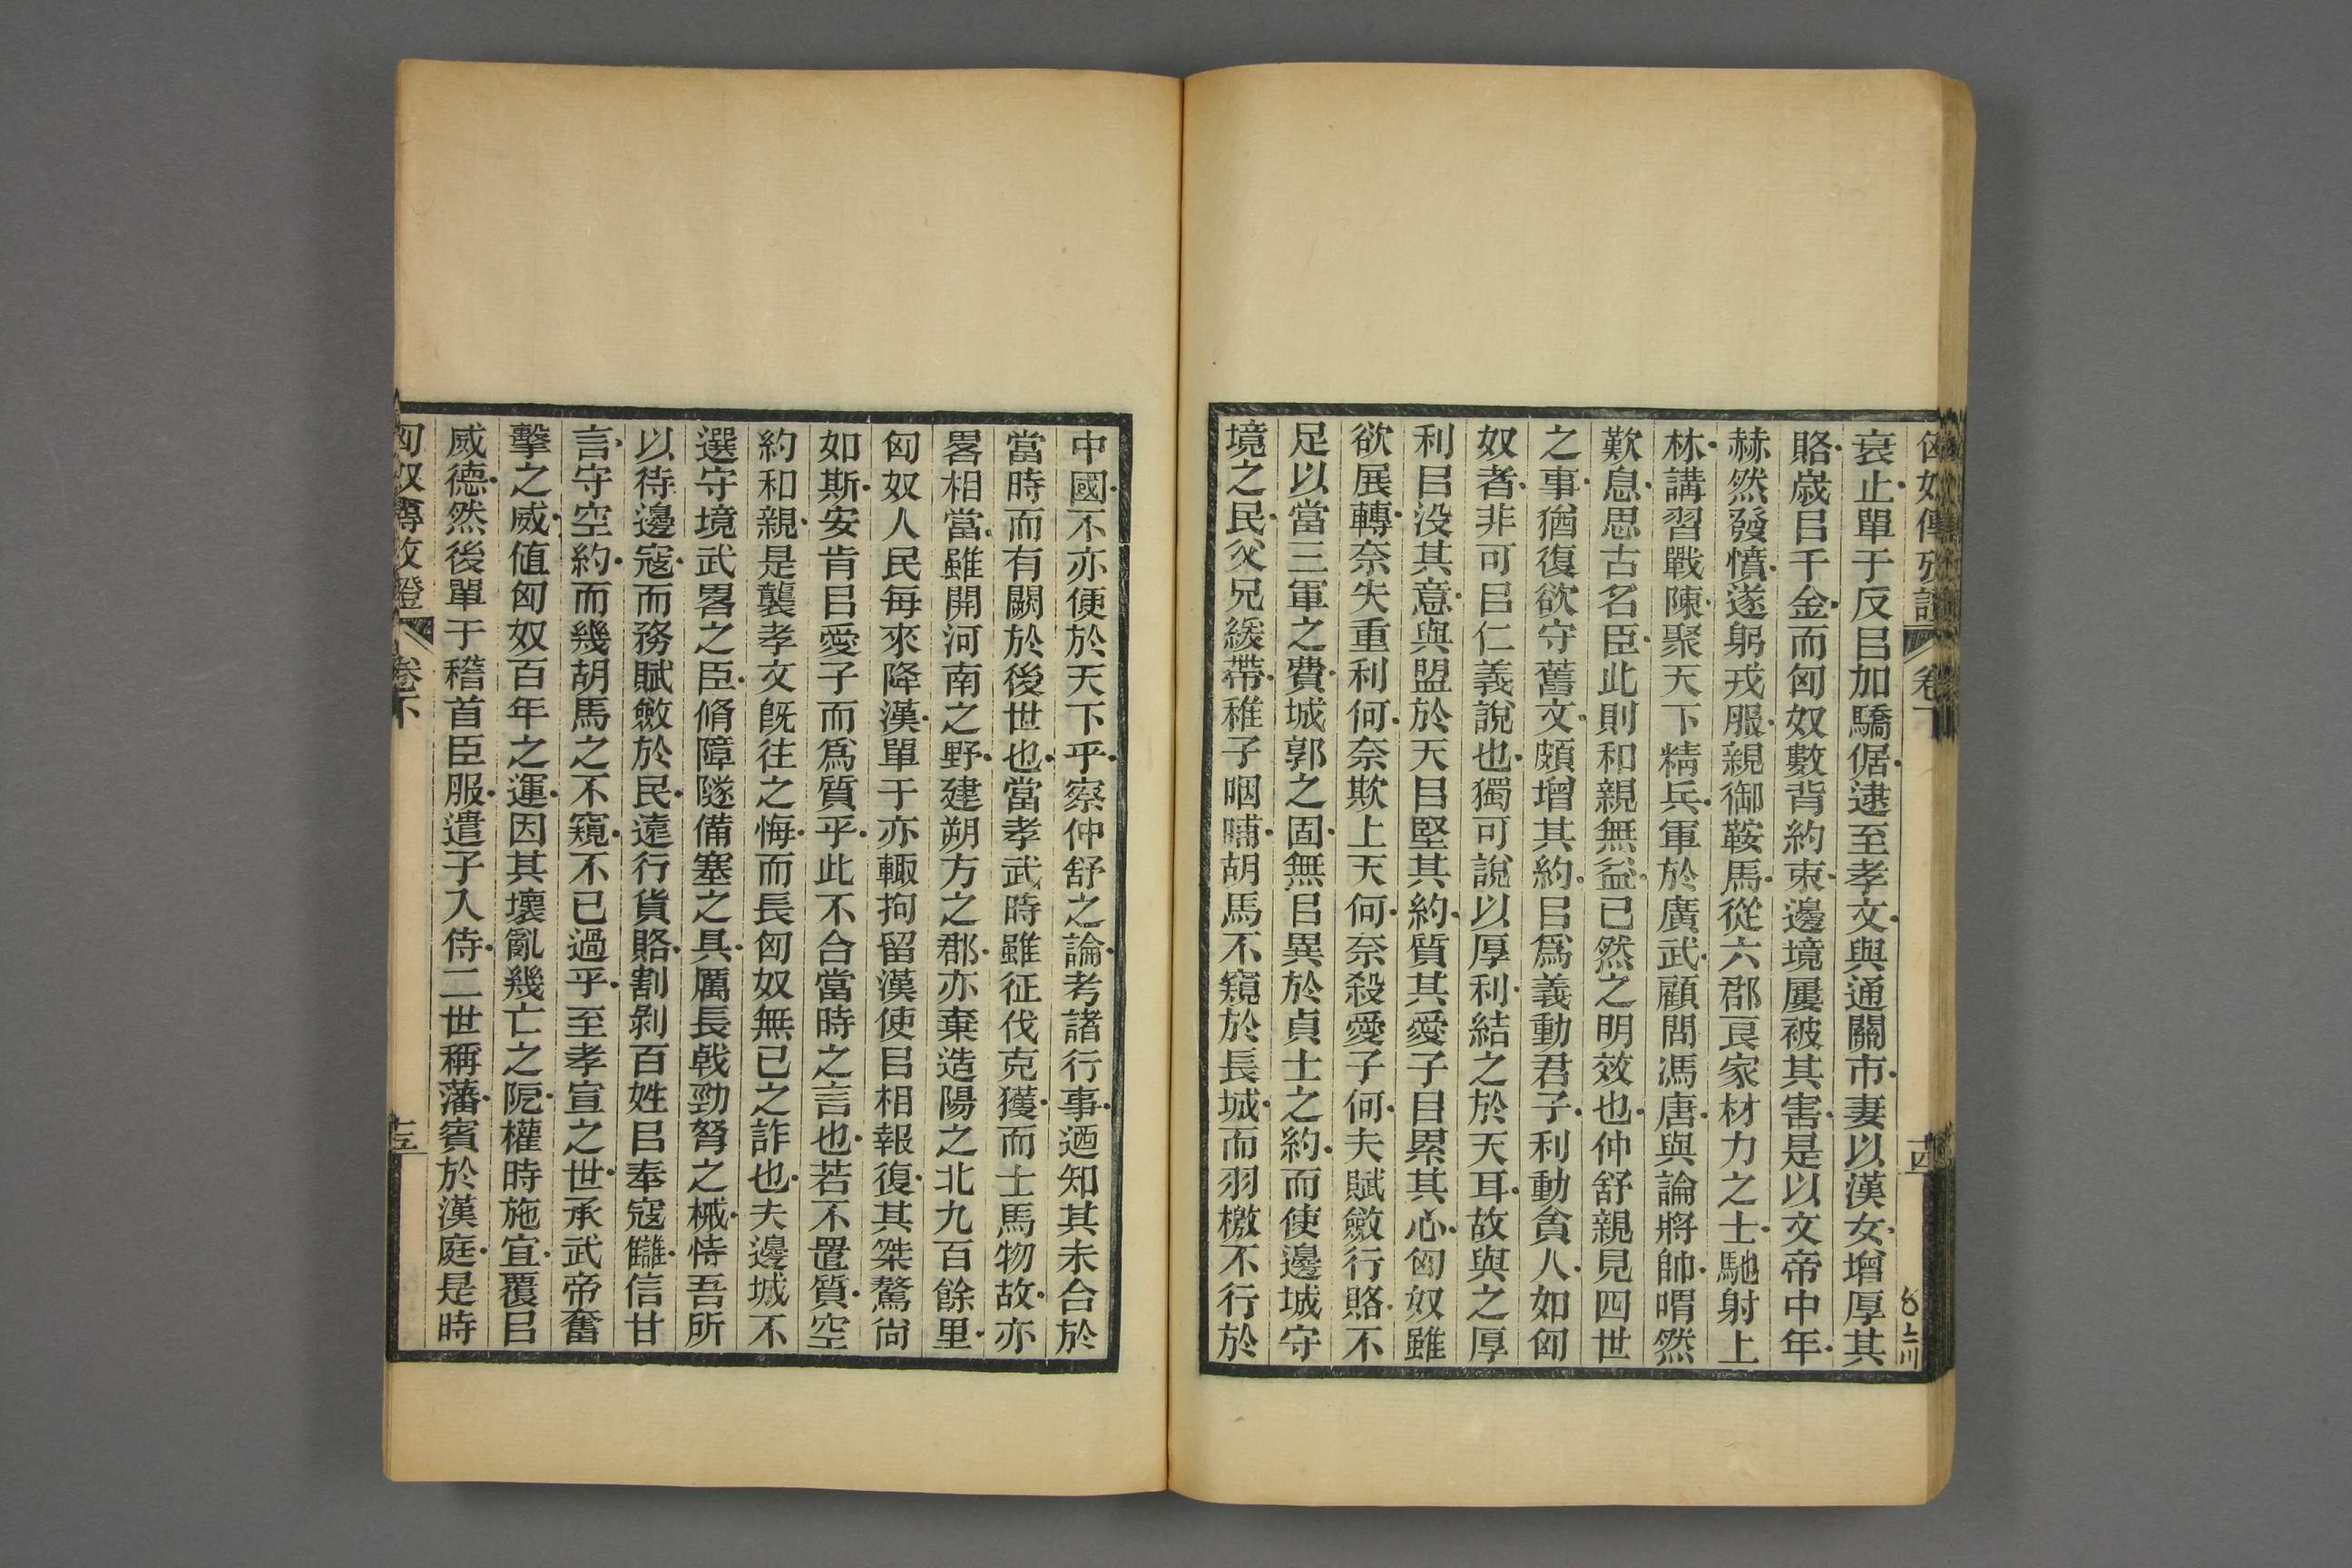 匈奴傳攷證 卷下 十四
衰止單于反㠯加驕倨逮至孝文與通關市妻以漢女增厚其
賂歲㠯千金而匈奴數背約束邊境屢被其害是以文帝中年
赫然發憤遂躬戎服親御鞍馬從六郡良家材力之士馳射上
林講習戰陳聚天下精兵軍於廣武顧問馮唐與論將帥喟然
歎息思古名臣此則和親無益已然之明效也仲舒親見四世
之事猶復欲守舊文頗增其約㠯爲義動君子利動貪人如匈
奴者非可㠯仁義說也獨可說以厚利結之於天耳故與之厚
利㠯沒其意與盟於天㠯堅其約質其愛子㠯累其心匈奴雖
欲展轉奈失重利何奈欺上天何奈殺愛子何夫賦斂行賂不
足以當三軍之費城郭之固無㠯異於貞士之約而使邊城守
境之民父兄緩帶稚子咽哺胡馬不窺於長城而羽檄不行於
中國不亦便於天下乎察仲舒之論考諸行事迺知其未合於
當時而有闕於後世也當孝武時雖征伐克獲而士馬物故亦
畧相當雖開河南之野建朔方之郡亦棄造陽之北九百餘里
匈奴人民每來降漢單于亦輙拘留漢使㠯相報復其桀驁尚
如斯安肯㠯愛子而爲質乎此不合當時之言也若不置質空
約和親是襲孝文旣往之悔而長匈奴無已之詐也夫邊城不
選守境武畧之臣脩障隧備塞之具厲長戟勁弩之械恃吾所
以待邊寇而務賦斂於民遠行貨賂割剝百姓㠯奉寇讎信甘
言守空約而幾胡馬之不窺不已過乎至孝宣之世承武帝奮
擊之威値匈奴百年之運因其壞亂幾亡之阸權時施宜覆㠯
威德然後單于稽首臣服遣子入侍二世稱藩賓於漢庭是時
匈奴傳攷證 卷下 十五